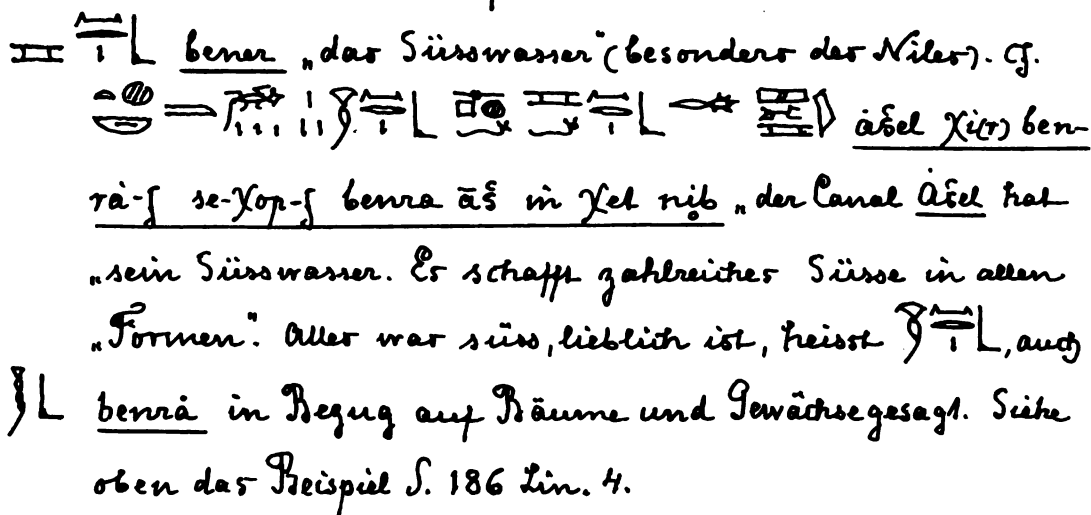 bener „das Süsswasser“ (besonders des Niles). Cf.
ȧšel χi(r) ben-
rȧ-f se-χop-f benra āš in χet nib „der Canal Ȧšel hat
„sein Süsswasser. Er schafft zahlreiches Süsse in allen
„Formen“. Alles was süss, lieblich ist, heisst , auch
benrȧ in Bezug auf Bäume und Gewächse gesagt. Siehe
oben das Beispiel S. 186 Lin. 4.